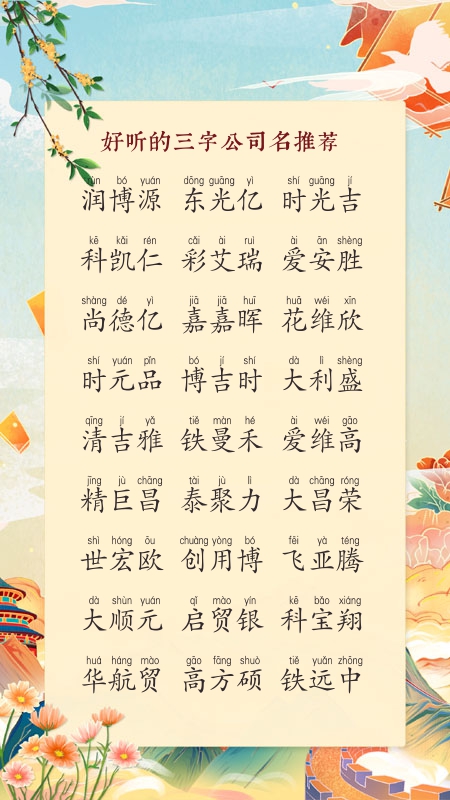 好听的三字公司名推荐
rùn bó yuán dōng guāng yì shí guāng jí
润博源 东光亿 时光吉
kē kǎi rén cǎi ài ruì ài ān shèng
科凯仁 彩艾瑞 爱安胜
shàng dé yì jiā jiā huī huā wéi xīn
尚德亿 嘉嘉晖 花维欣
shí yuán pǐn bó jí shí dà lì shèng
时元品 博吉时 大利盛
qīng jí yǎ tiě màn hé ài wéi gāo
清吉雅 铁曼禾 爱维高
jīng jù chāng tài jù lì dà chāng róng
精巨昌 泰聚力 大昌荣
shì hóng ōu chuàng yòng bó fēi yà téng
世宏欧 创用博 飞亚腾
dà shùn yuán qǐ mào yín kē bǎo xiáng
大顺元 启贸银 科宝翔
huá háng mào gāo fāng shuò tiě yuǎn zhōng
华航贸 高方硕 铁远中